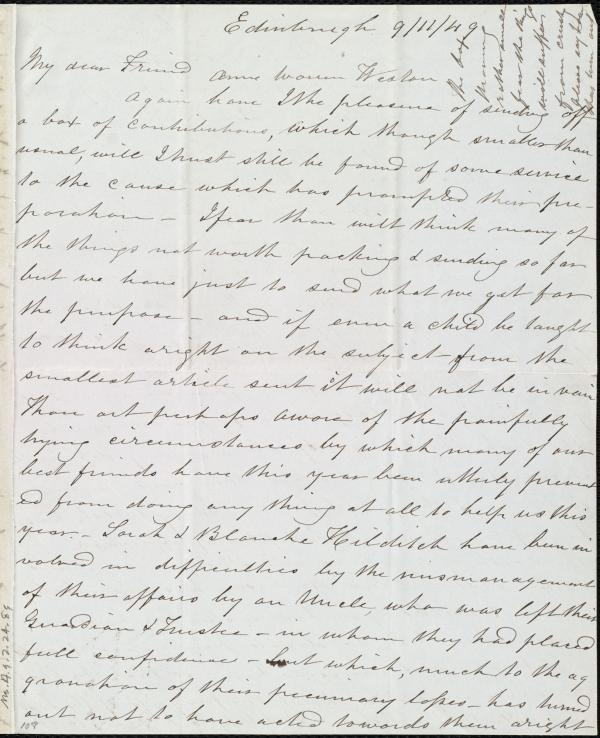 Edinburgh 9/11/49
My dear Friend Anne Warren Weston
Again have I the pleasure of sending off
a box of contributions, which though smaller than
usual, will I trust still be found of some service
to the cause which has prompted their pre-
paration - I fear thou wilt think many of
the things not worth packing & sending so far
but we have just to send what we get for
the purpose - and if even a child be taught
to think aright on the subject from the
smallest article sent it will not be in vain
Thou art perhaps aware of the painfully
trying circumstances by which many of our
best friends have this year been utterly prevent
ed from doing any thing at all to help us this
year. - Sarah & Blanche Hilditch have been in
volved in difficulties by the mismanagement
of their affairs by an Uncle, who was left their
Guardian & Trustee - in whom they had placed
full confidence - but which, much to the ag
gravation of their pecuniary losses - has turned
out not to have acted towards them aright
The box
from
Ms.A.9.2.24.89
109